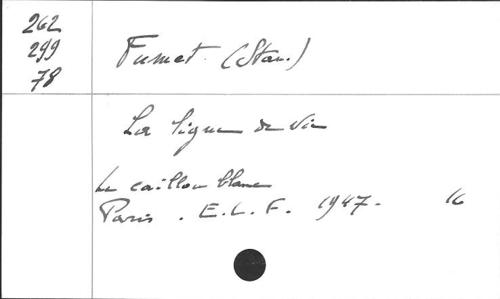 262
299
78
Fumet. (Stan.)
La ligne de vie
Le caillou blanc
Paris. E.L.F. 1947- 16